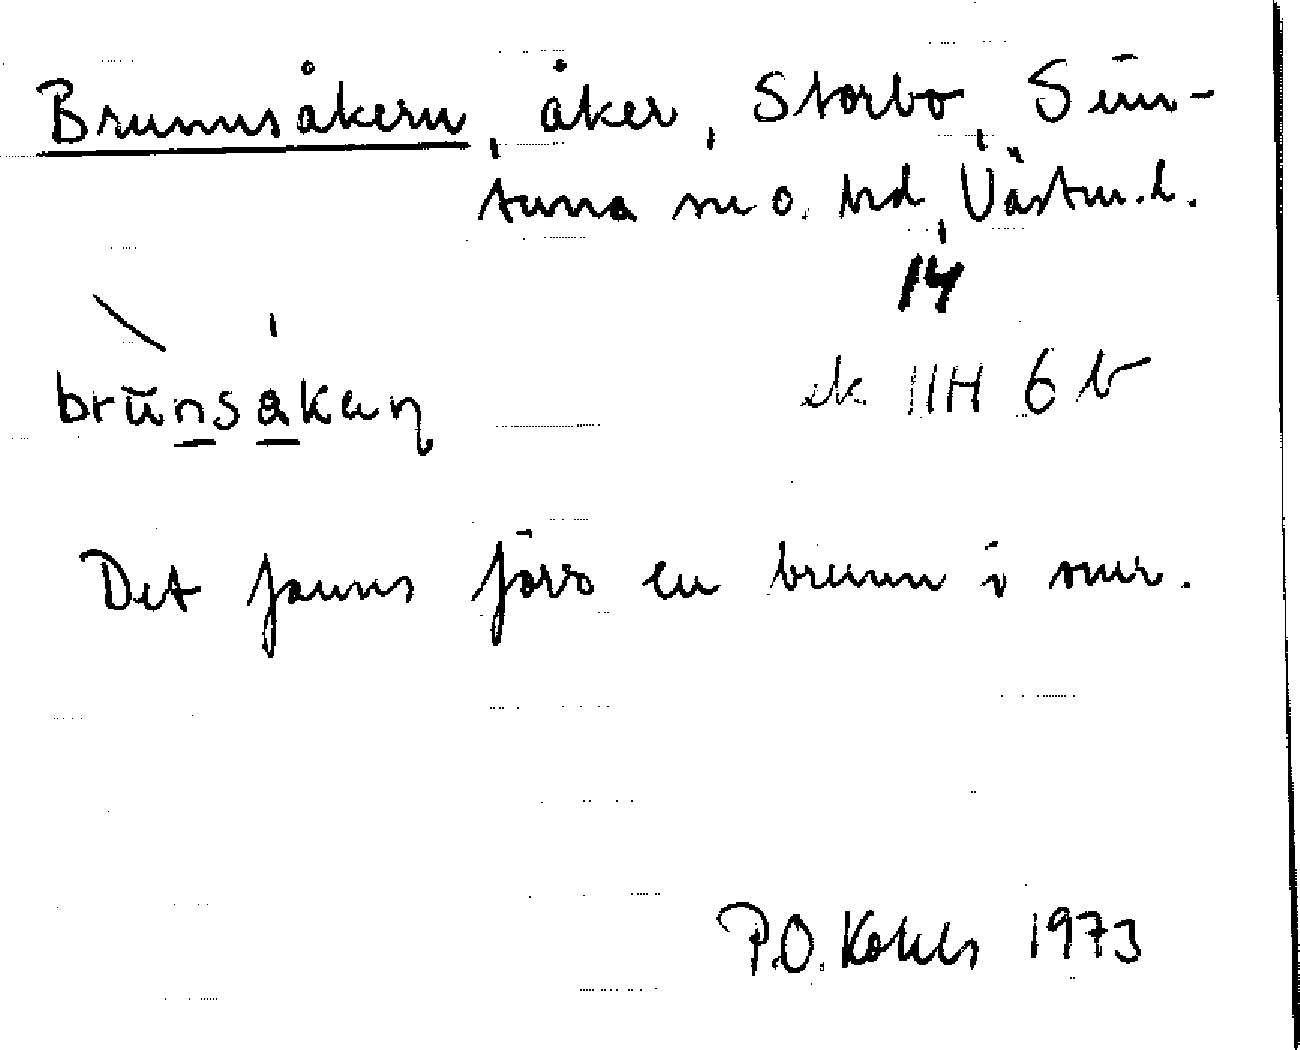 Brunnsåkern, åker, Storbo, Sim-
tuna sn o. hd, Västm.l.
14
brŭnsåkaṇ
ek 11H 6 b
Det fanns förr en brunn i mur.
P.O. Kohls 1973